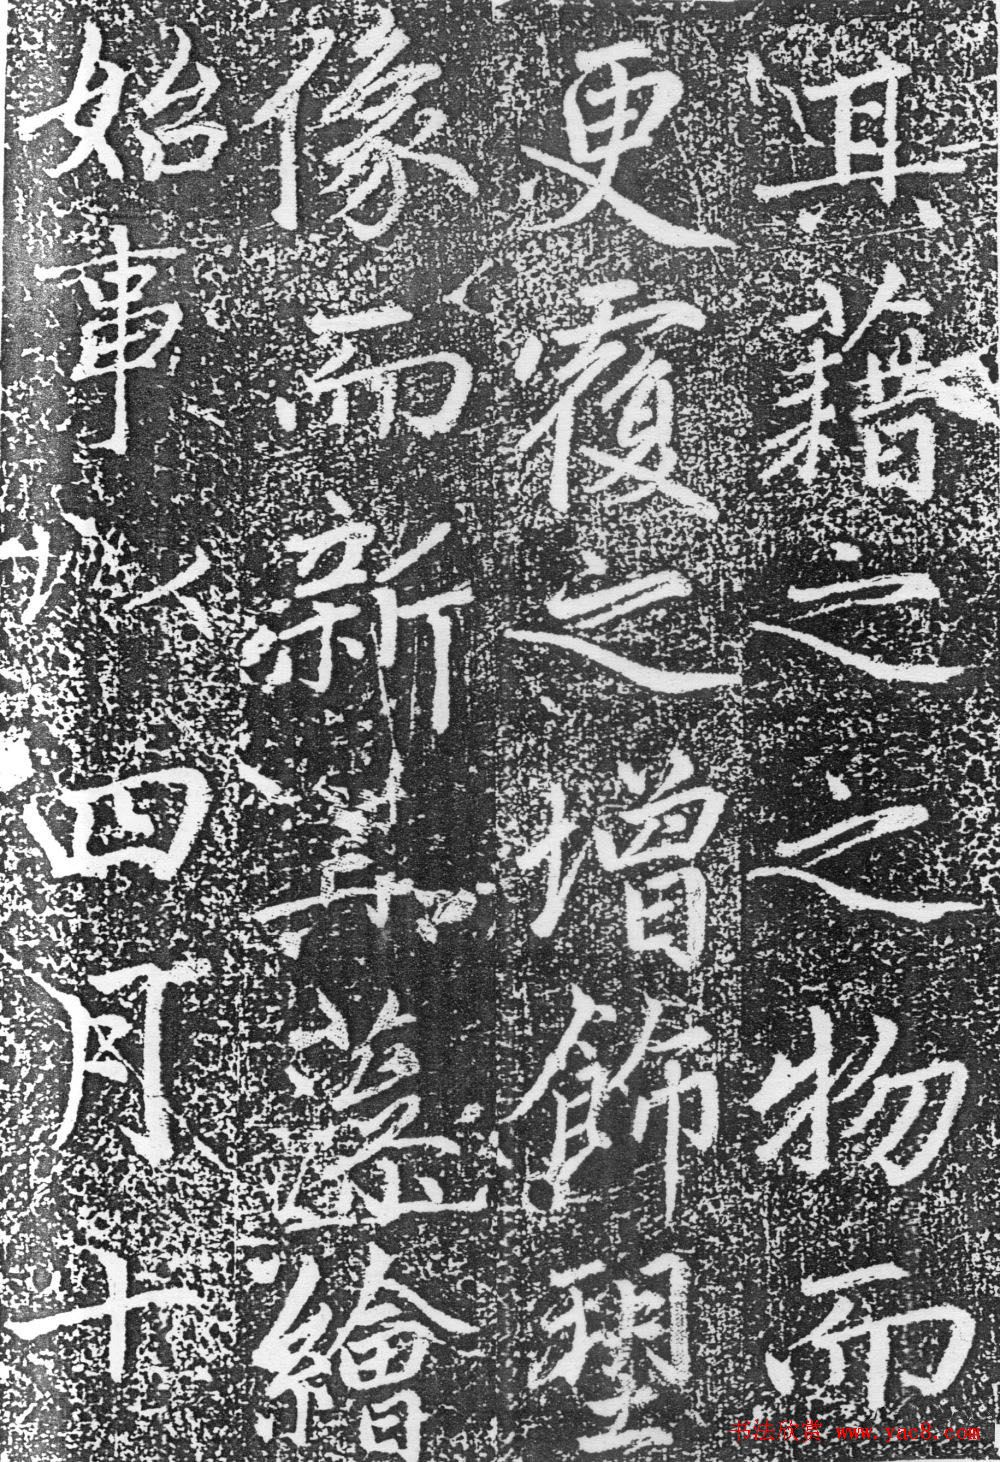 其藉之之物而
更覆之增飾塑
像而新其繪
始事於四月十
书法欣赏 www.yac8.com